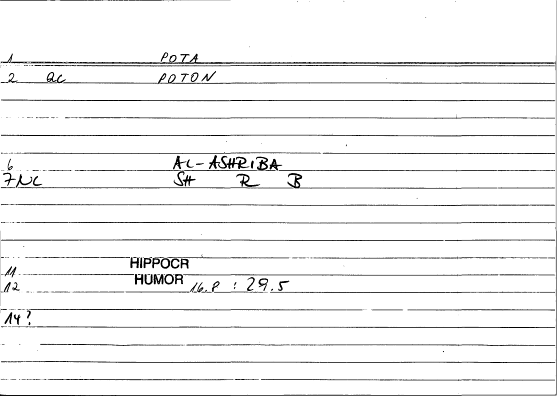 1 POTA
2 QC POTON
6 AL-ASHRIBA
7 NC SH R B
HIPPOCR
11
HUMOR
12 16.P : 29.5
14?